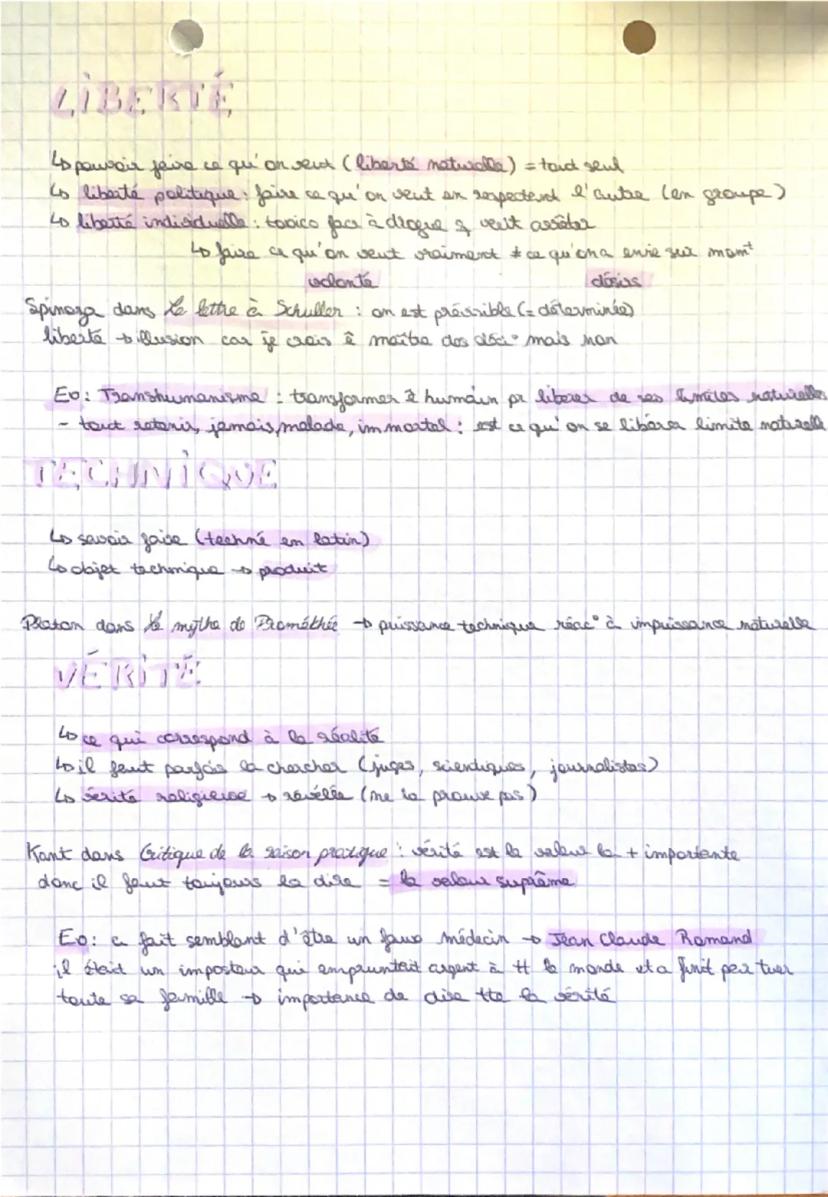 LIBERTÉ
↳ pouvoir faire ce qu'on veut (liberté naturelle) = tout seul
↳ liberté politique : faire ce qu'on veut en respectent l'autre (en groupe)
↳ liberté individuelle : toxico face à drogue veut arrêter
↳ faire ce qu'on veut vraiment ≠ ce qu'on a envie sur momt
volonté désirs
Spinoza dans La lettre à Schuller : on est prévisible (= déterminée)
liberté → illusion car je crois ê maître des déci° mais non
Ex : Transhumanisme : transformer ê humain pr liberer de ses limites naturelles
- tout retenir, jamais malade, immortel : est ce qu'on se libérer limite naturelle
TECHNIQUE
↳ savoir faire (techné en latin)
↳ objet technique → produit
Platon dans Le mythe de Prométhée → puissance technique réac° à impuissance naturelle
VÉRITÉ
↳ ce qui correspond à la réalité
↳ il faut parfois la chercher (juges, scientiques, journalistes)
↳ vérité religieuse → révélée (ne la prouve pas)
Kant dans Critique de la raison pratique : vérité est la valeur la + importante
donc il faut toujours la dire = la valeur suprême
Ex : a fait semblant d'être un faux médecin → Jean Claude Romand
il était un imposteur qui empruntait argent à tt le monde et a finit par tuer
toute sa famille → importance de dire tte la vérité